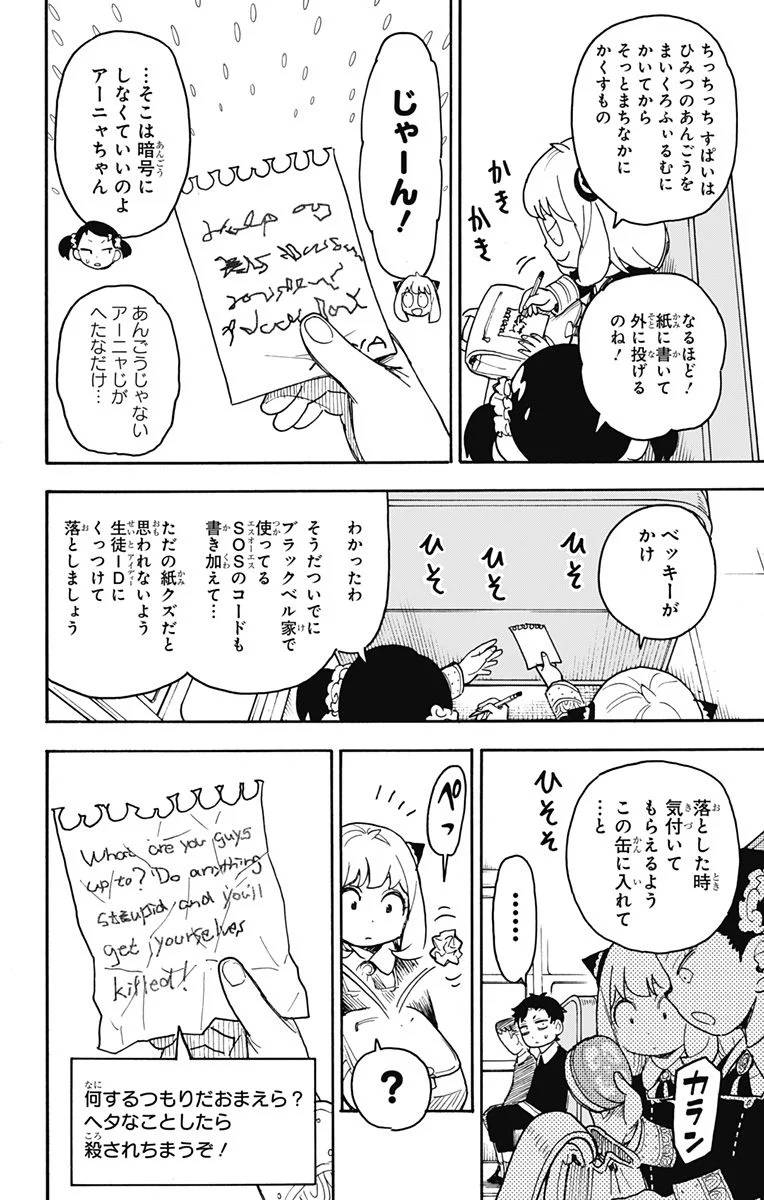 ちっちっち すぱいは
ひみつのあんごうを
まいくろふぃるむに
かいてから
そっとまちなかに
かくすもの
かきかき
なるほど!
紙に書いて
外に投げる
のね!
じゃーん!
Help
…そこは暗号に
しなくていいのよ
アーニャちゃん
あんごうじゃない
アーニャじが
へたなだけ…
ベッキーが
かけ
ひそ
ひそ
ひそ
わかったわ
そうだついでに
ブラックベル家で
使ってる
SOSのコードも
書き加えて…
ただの紙クズだと
思われないよう
生徒IDに
くっつけて
落としましょう
落とした時
気付いて
もらえるよう
この缶に入れて
…と
ひそそ
カラン
……
ペっ
?
What are you guys
up to? Do anything
stupid and you'll
get yourselves
killed!
何するつもりだおまえら?
ヘタなことしたら
殺されちまうぞ!